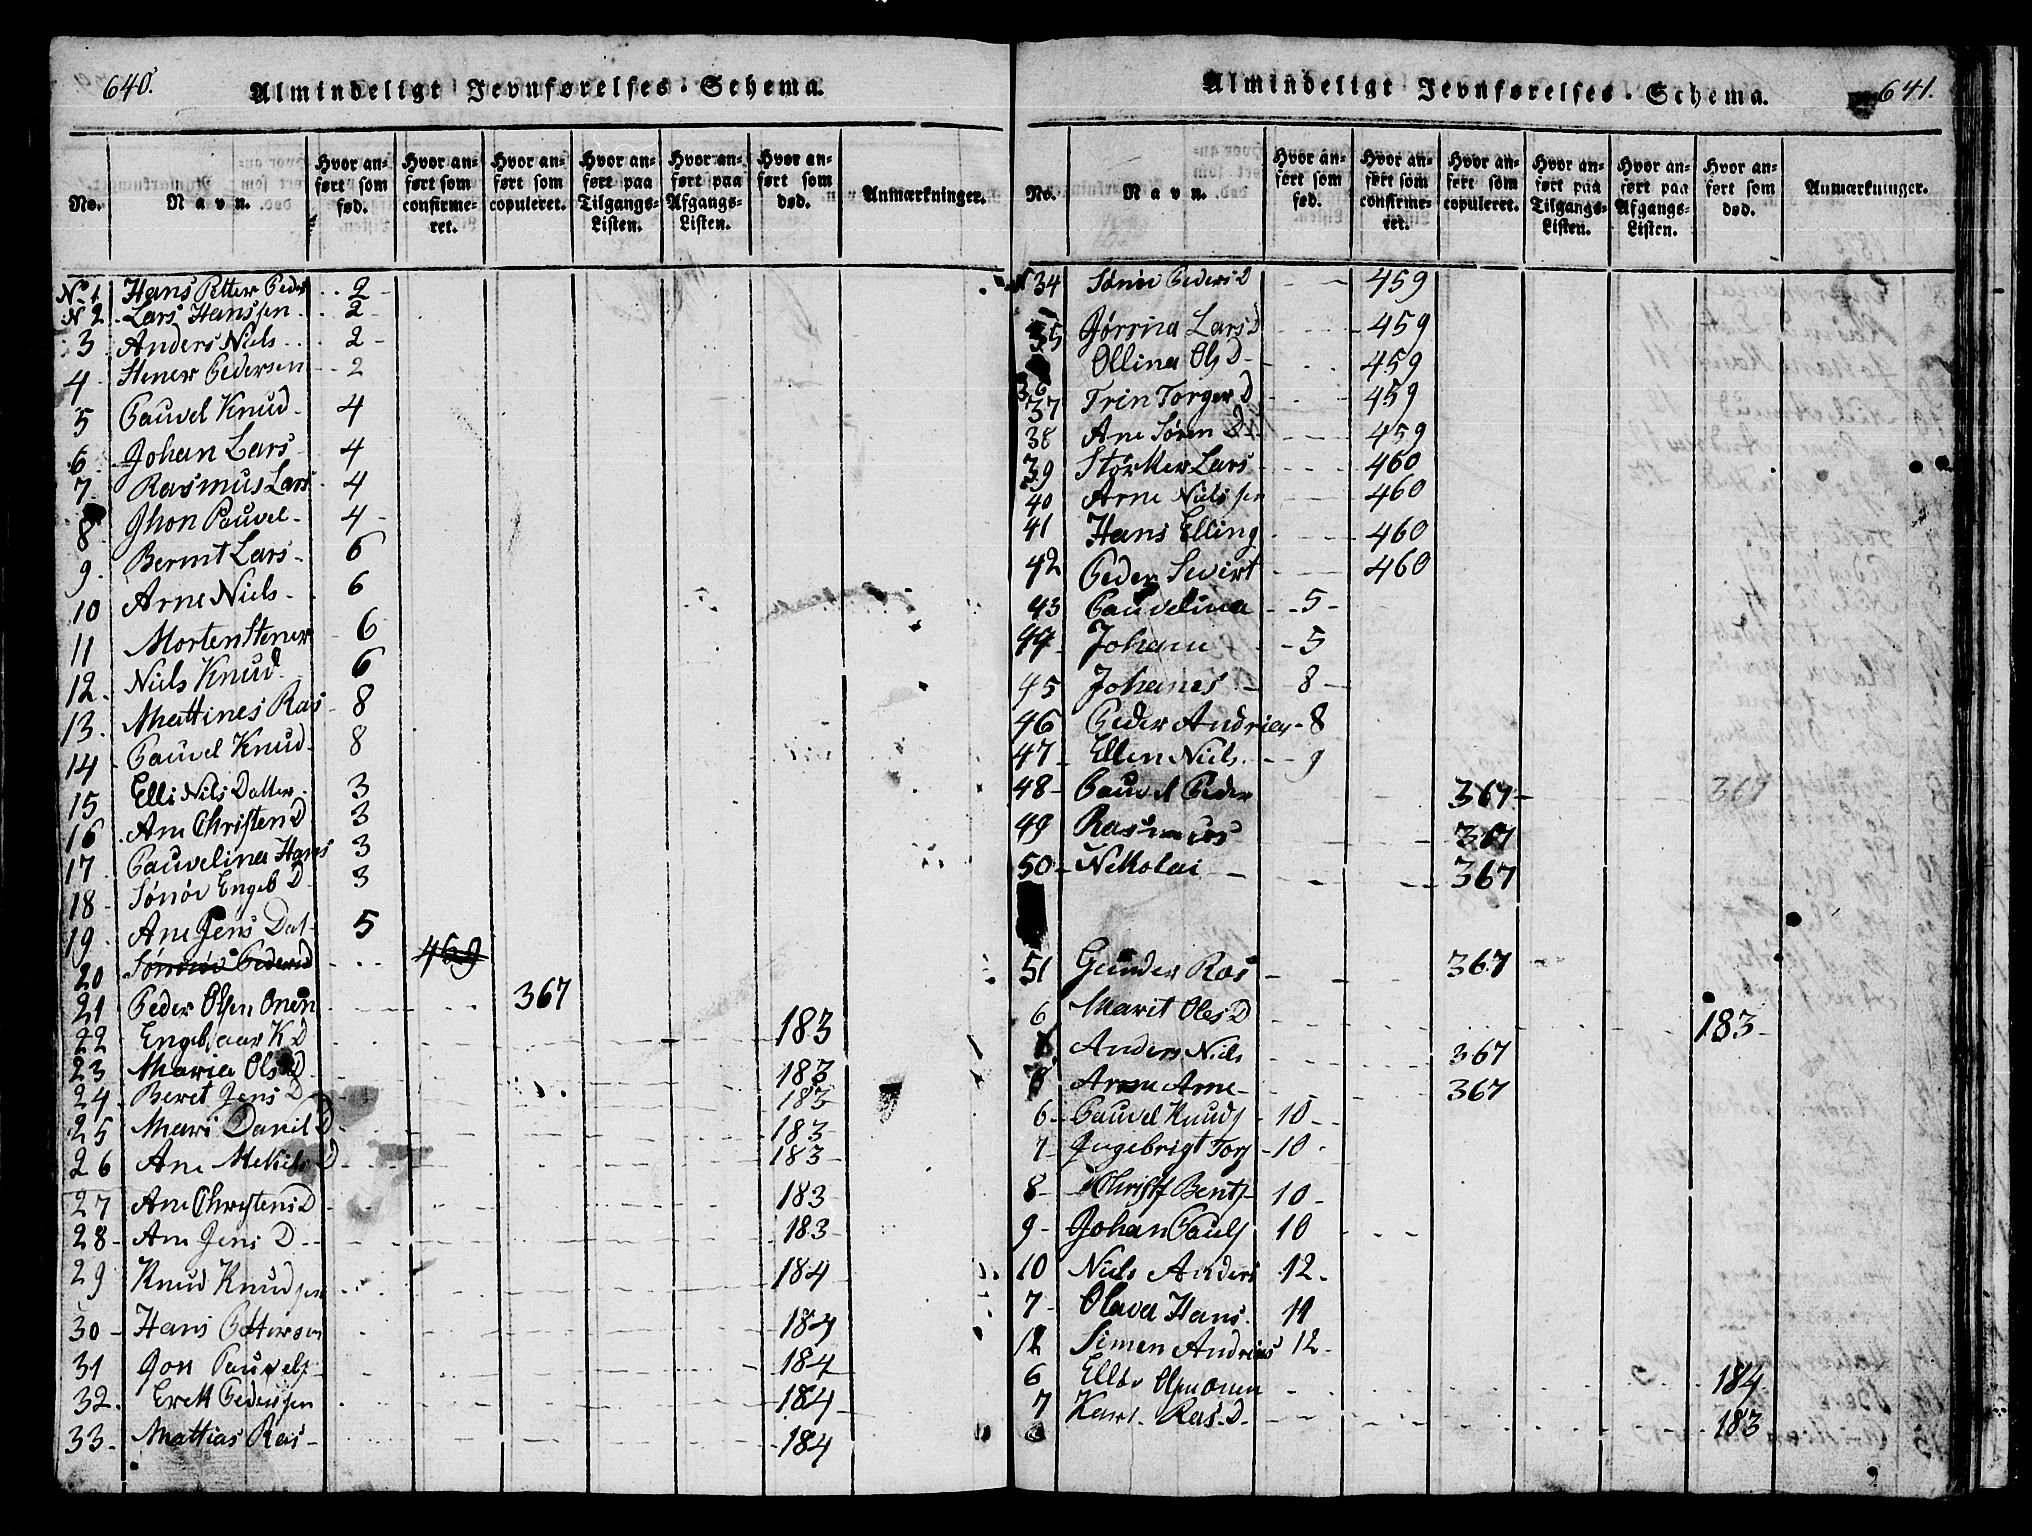 640.
Almindeligt Jevnførelses-Schema.
No. Navn. Hvor anført som fød. Hvor anført som confirmeret. Hvor anført som copuleret. Hvor anført paa Tilgangs-Listen. Hvor anført paa Afgangs-Listen. Hvor anført som død. Anmærkninger.
No. 1 Hans Petter Peder 2
N 2 Lars Hanssen 2
3 Anders Niels 2
4 Stener Pedersen 2
5 Pauvel Knud 4
6 Johan Lars 4
7 Rasmus Lars 4
8 Jhon Pauvel 4
9. Bernt Lars 6
10 Arne Niels 6
11 Morten Stener 6
12 Niels Knud 6
13. Mattines Ras 8
14 Pauvel Knud 8
15 Elli Nils Datter 3
16 Ane Christen D 3
17 Pauvelina Hans 3
18 Sønøv Engeb D 3
19. Ane Jens Dat 5
20 Peders D 459
21 Peder Olsen Onøn 367
22 Engebjaar K D 183
23 Maria Ols D 183
24 Beret Jens D 183
25 Mari Danil D 183
26 Ane Mekels D 183
27 Ane Christens D 183
28 Ane Jens D 183
29 Knud Knudsen 184
30 Hans Pettersen 184
31 Jon Pauvels 184
32. Erett Pedersen 184
33. Mattias Ras 184
641.
Almindeligt Jevnførelses-Schema.
No. Navn. Hvor anført som fød. Hvor anført som confirmeret. Hvor anført som copuleret. Hvor anført paa Tilgangs-Listen. Hvor anført paa Afgangs-Listen. Hvor anført som død. Anmærkninger.
34 Peders D 459
35 Gørrina Lars D 459
36 Ollina Ols D 459
37 Trin Torger D 459
38 Ane Søren D 459
39 Størker Lars 460
40 Arne Nielssen 460
41 Hans Elling 460
42 Peder Sivirt 460
43 Pauvelina 5
44 Johan 5
45 Johanes 8
46 Peder Andreas 8
47 Ellen Niels 9
48 Pauvel Peder 367 367
49 Rasmus 367
50 Nikolai 367
51 Gunder Ras 367
6 Marit Oles D 183
Anders Niels 367
8 Arne Arne 367
6 Pauvel Knuds 10
7 Ingebrigt Tors 10
8 Christ Bents 10
9 Johan Pauls 10
10 Niels Anders 12.
7 Olava Hans. 11
12 Simen Andreas 12
6 Olsen Onøn 184
7 Kari Ras. D. 183